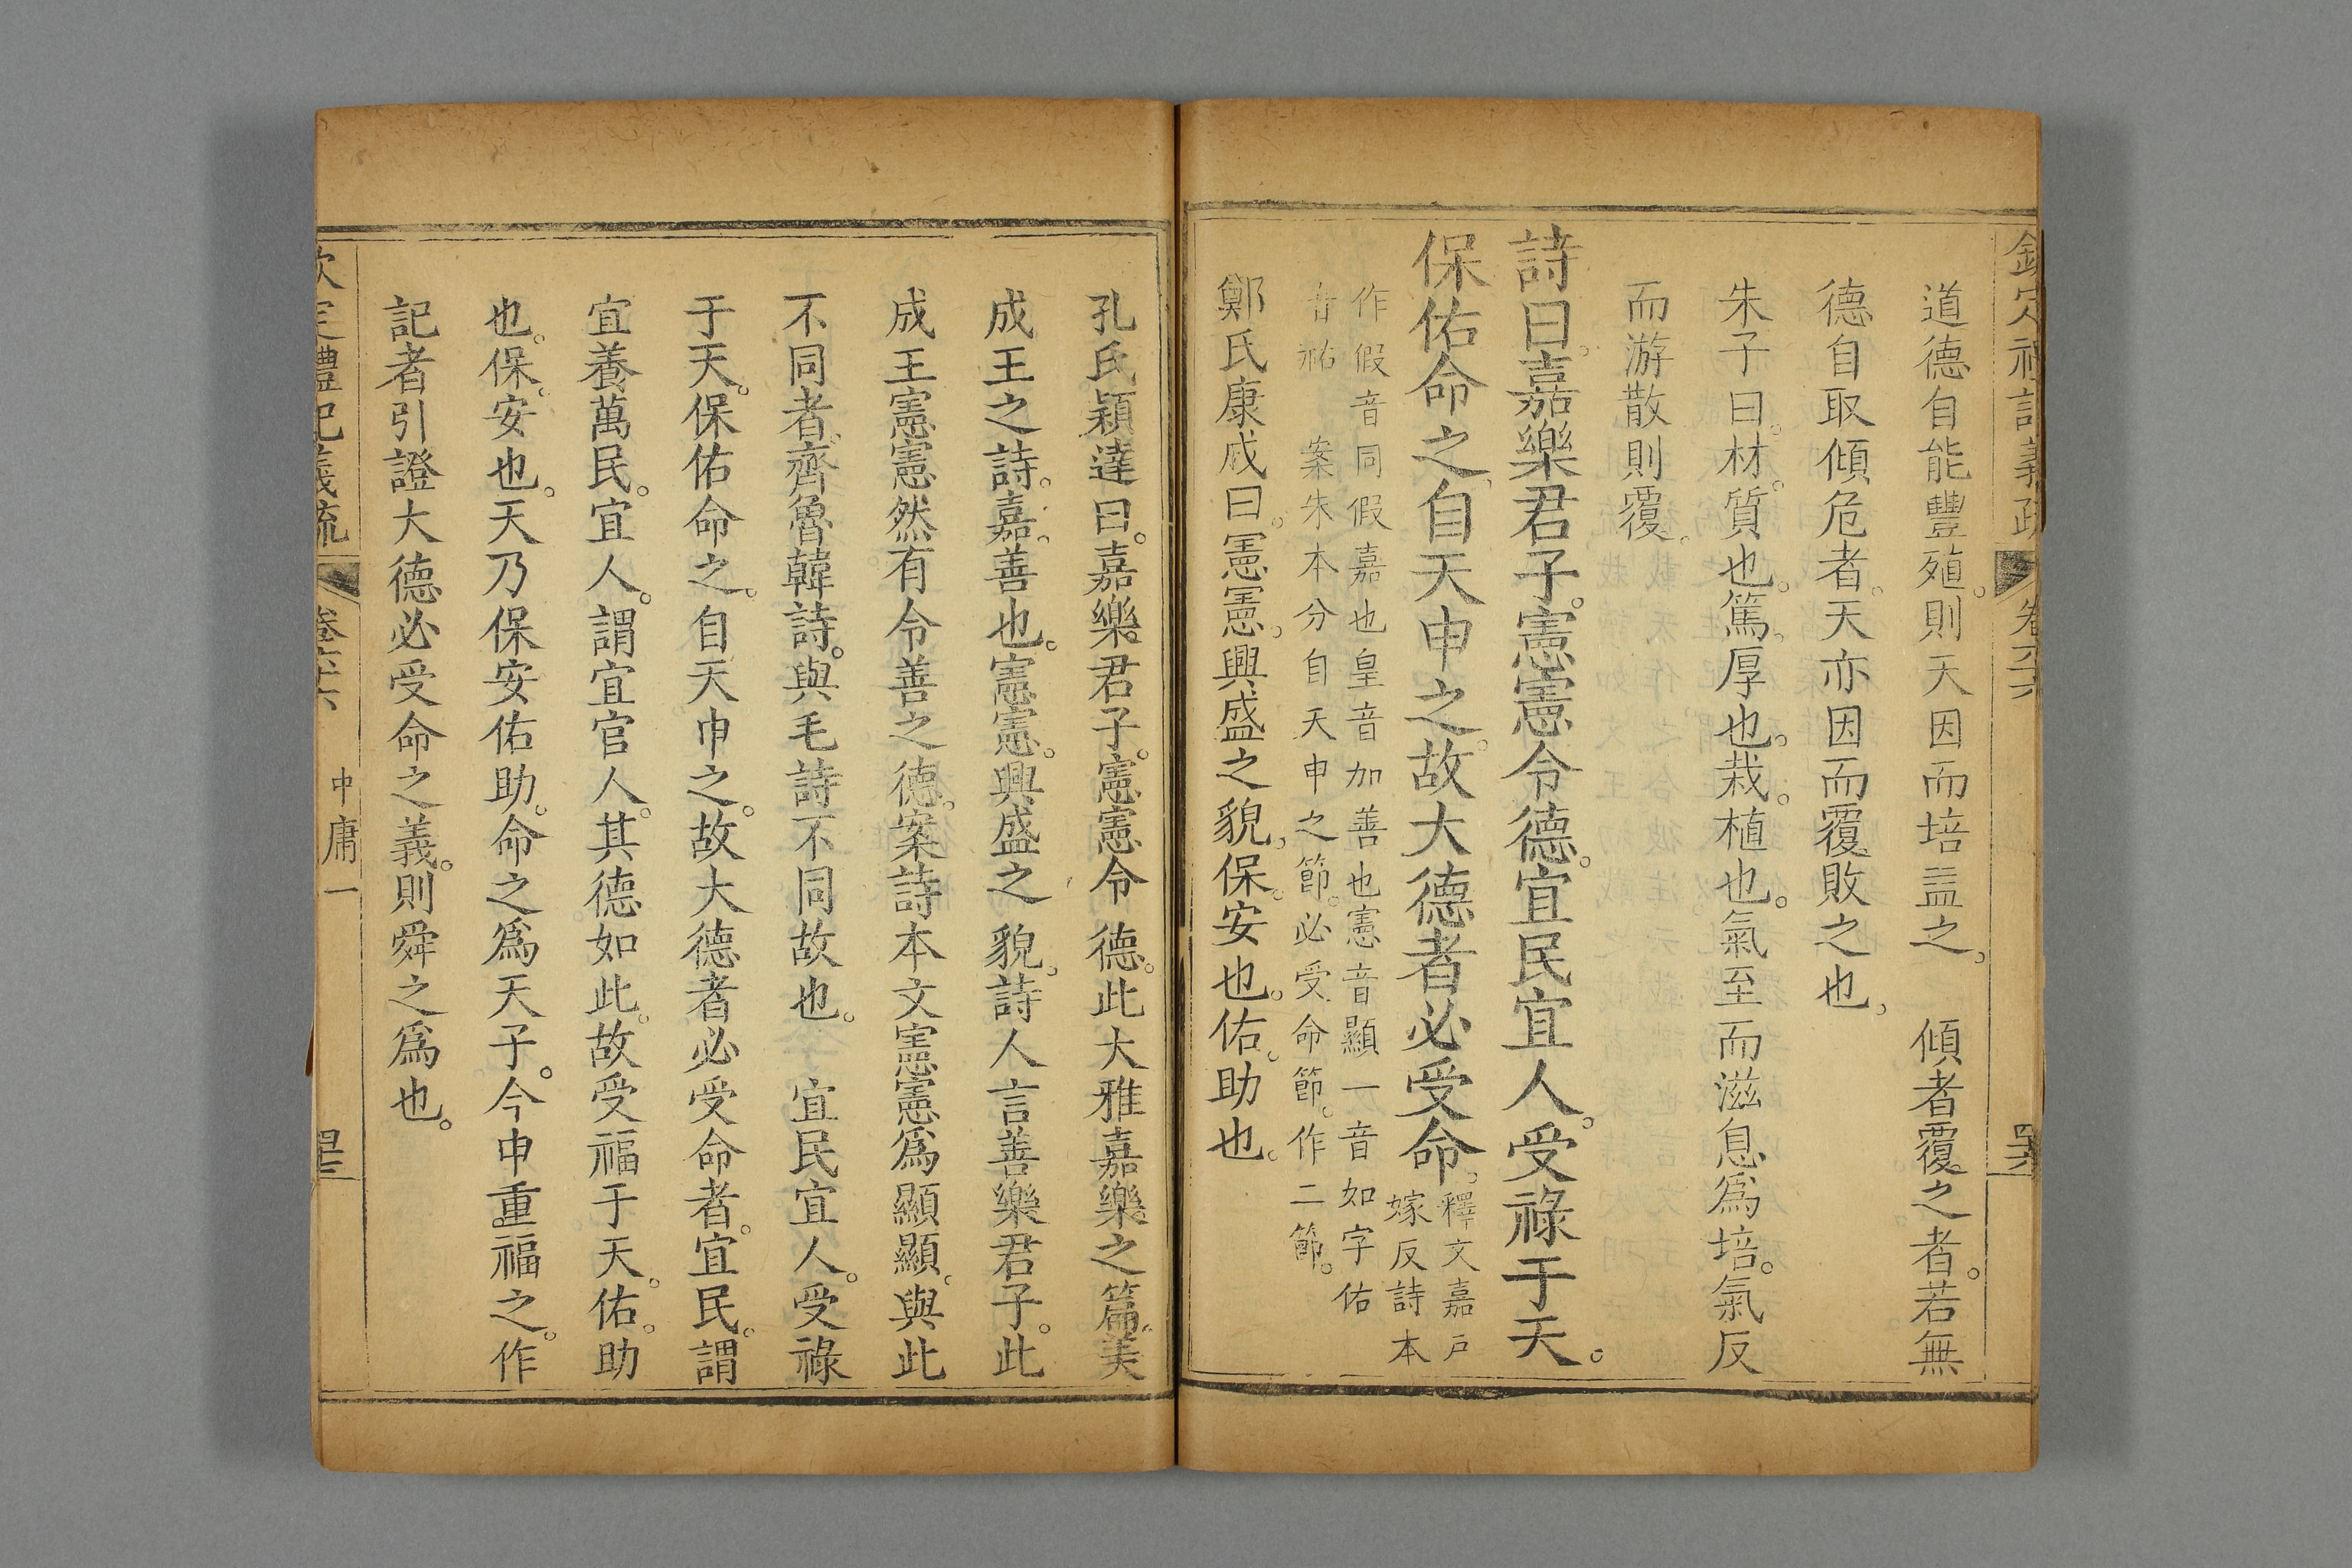 道德自能豐殖。則天因而培益之。　傾者覆之者。若無
德自取傾危者。天亦因而覆敗之也。
朱子曰。材。質也。篤。厚也。栽。植也。氣至而滋息爲培。氣反
而游散則覆。
詩曰。嘉樂君子。憲憲令德。宜民宜人。受祿于天。
保佑命之。自天申之。故大德者必受命。釋文嘉戶
嫁反詩本
作假音同假嘉也皇音加善也憲音顯一音如字佑
音祐　案朱本分自天申之節。必受命節。作二節。
鄭氏康成曰。憲憲。興盛之貌。保。安也。佑。助也。
孔氏穎達曰。嘉樂君子。憲憲令德。此大雅嘉樂之篇。美
成王之詩。嘉。善也。憲憲。興盛之貌。詩人言善樂君子。此
成王憲憲然有令善之德。案詩本文憲憲爲顯顯。與此
不同者。齊魯韓詩。與毛詩不同故也。　宜民宜人。受祿
于天。保佑命之。自天申之。故大德者必受命者。宜民。謂
宜養萬民。宜人。謂宜官人。其德如此。故受福于天。佑。助
也。保。安也。天乃保安佑助。命之爲天子。今申重福之。作
記者引證大德必受命之義。則舜之爲也。
欽定禮記義疏　卷六十六　中庸一